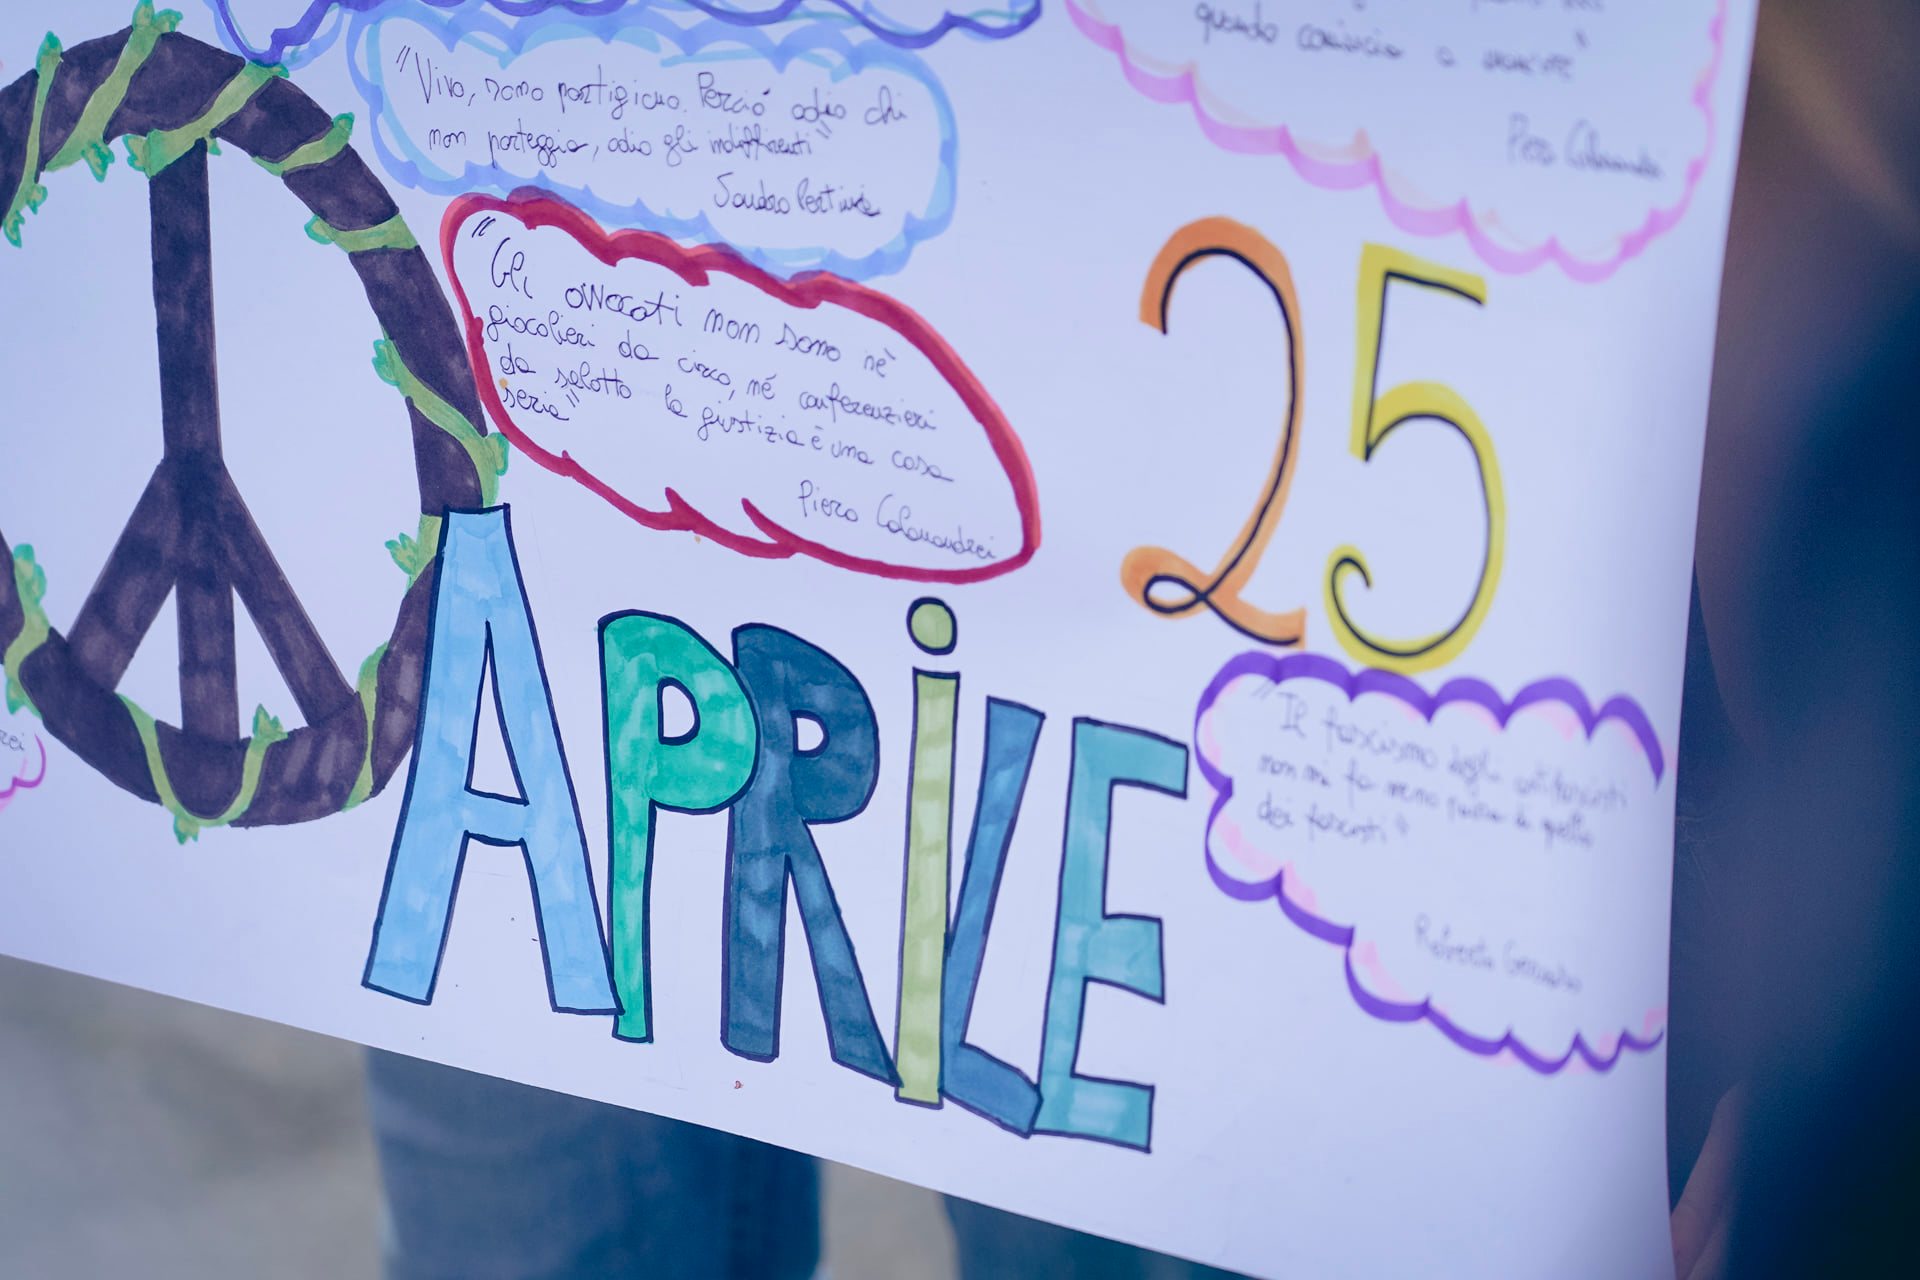 "Vivo, sono partigiano. Perciò odio chi
non parteggia, odio gli indifferenti"
Sandro Pertini
quando comincia a
Piero Calamandrei
"Gli avvocati non sono nè
giocolieri da circo, né conferenzieri
da salotto la giustizia è una cosa
seria"
Piero Calamandrei
25
APRiLE
"Il fascismo degli antifascisti
non mi fa meno paura di quello
dei fascisti"
Roberto Gervaso
rei